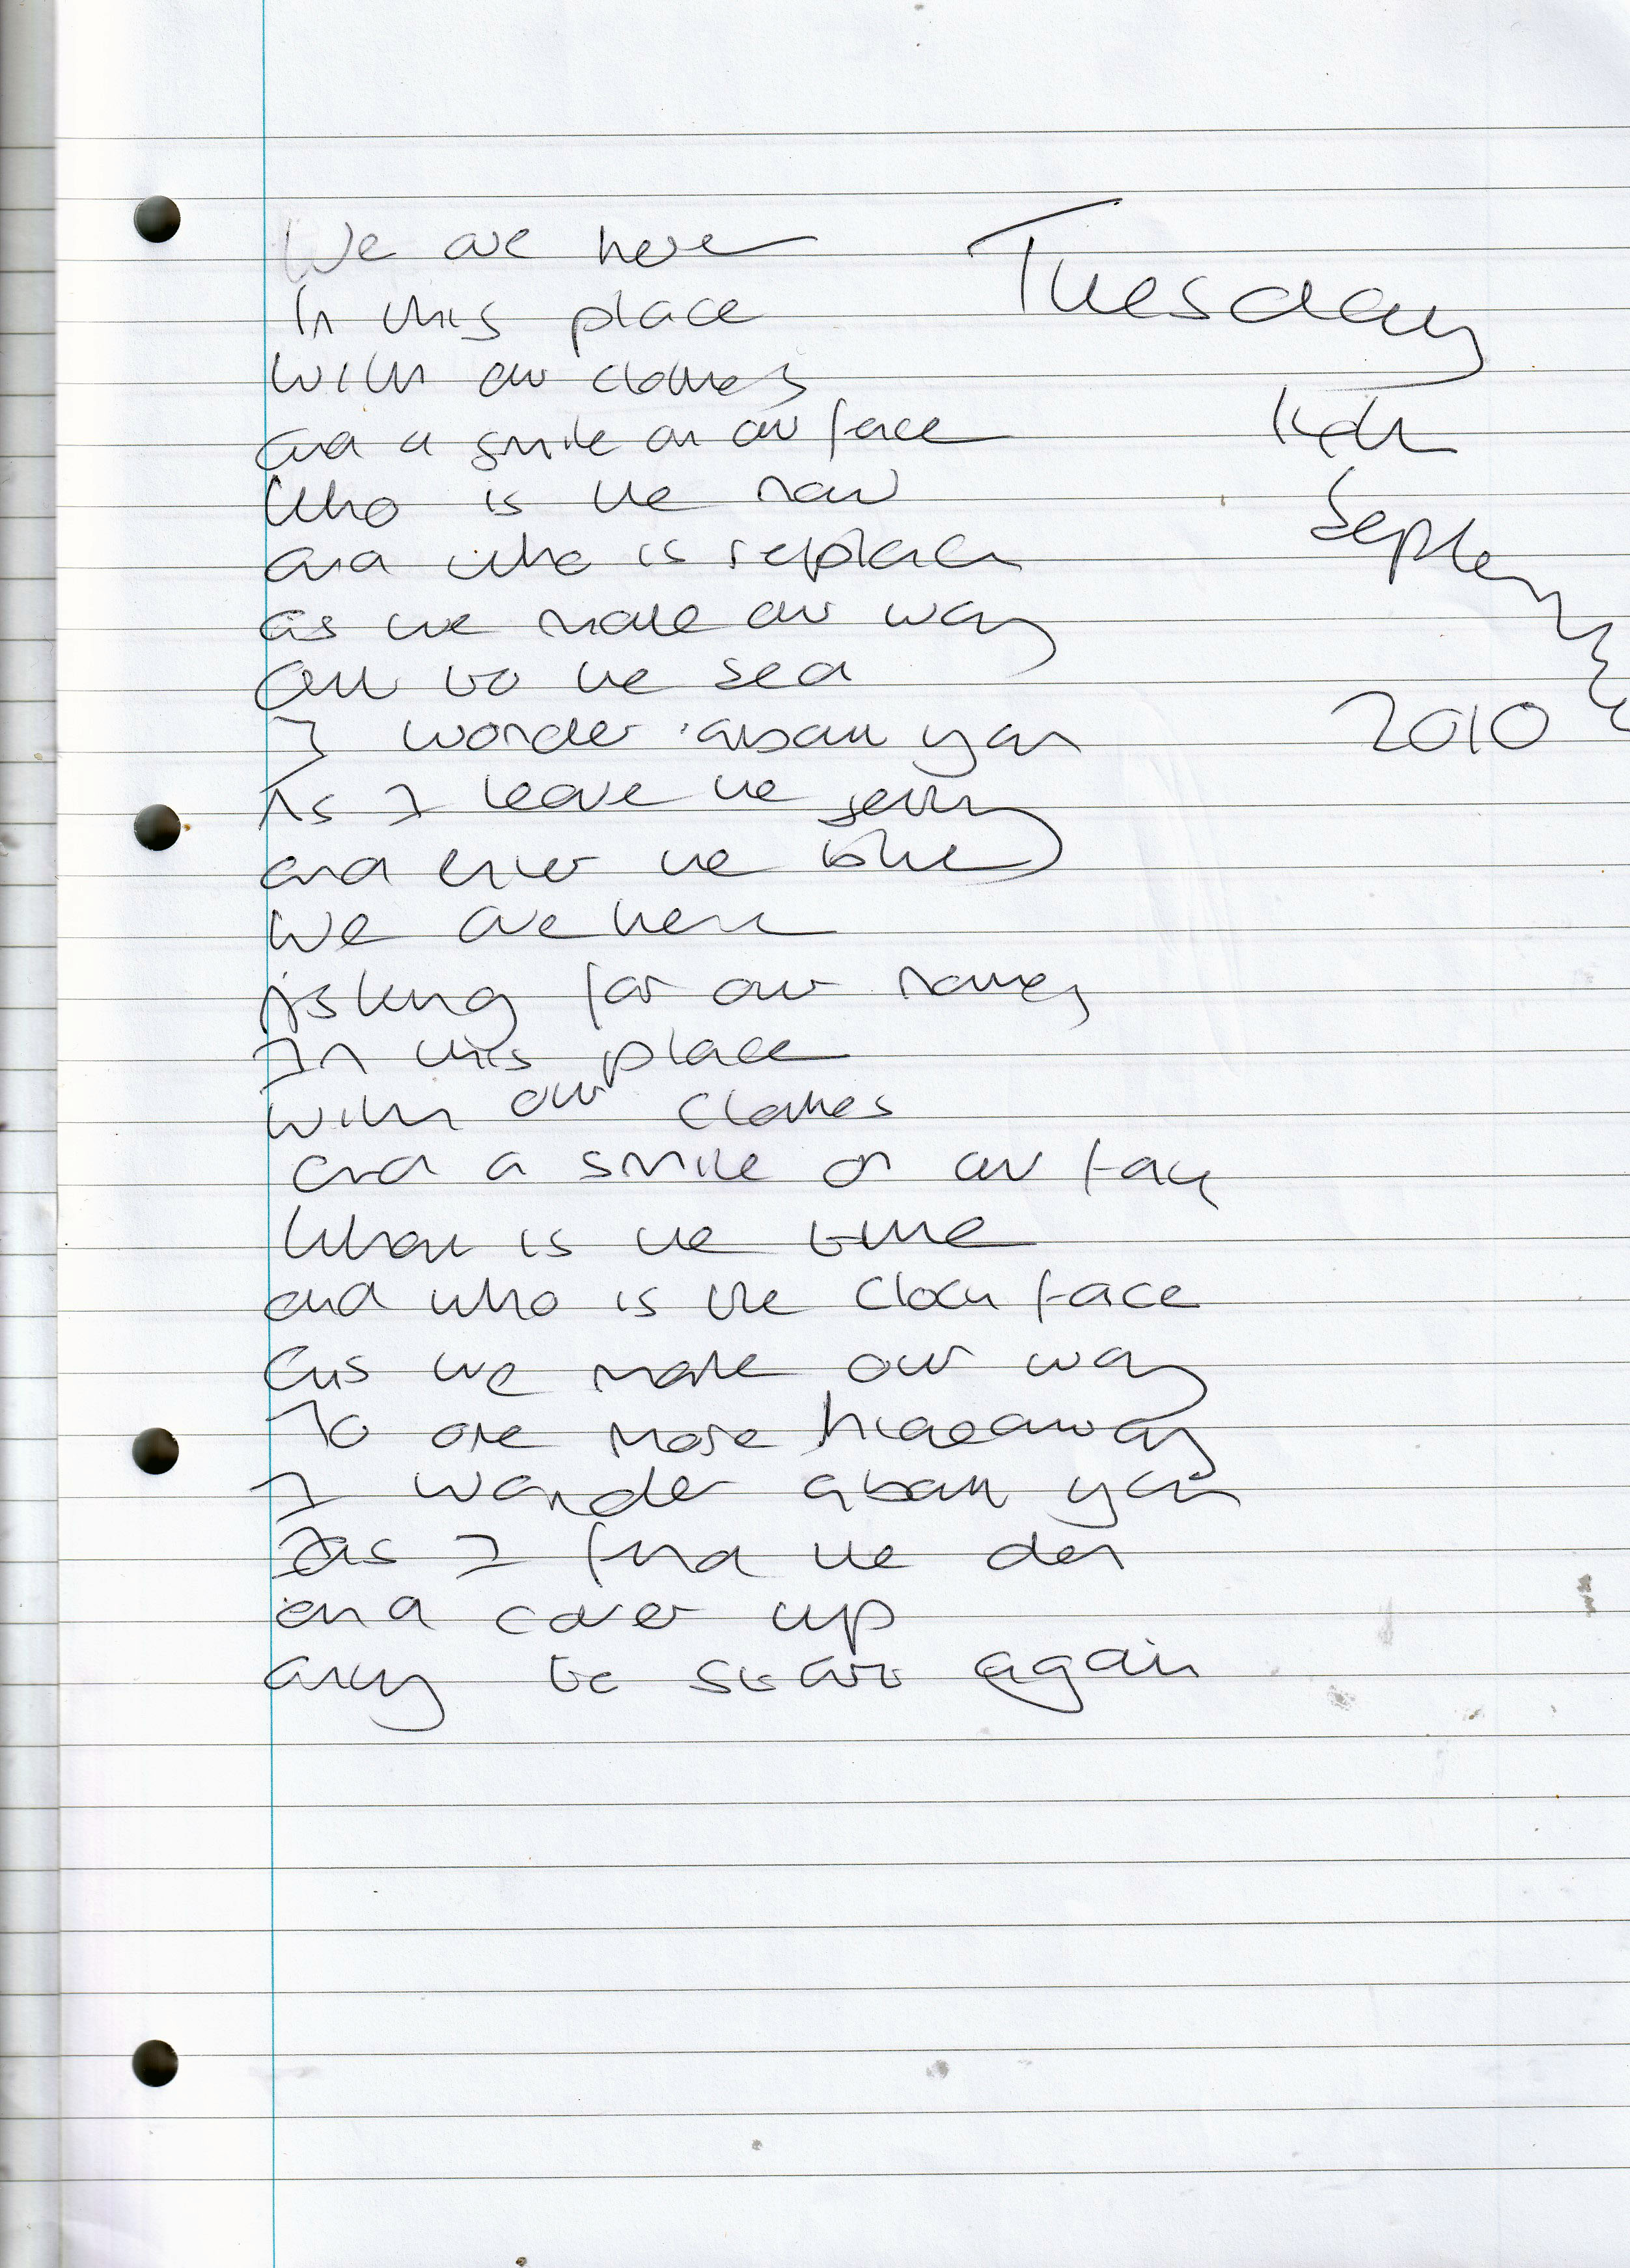 We are here
In this place
With our clothes
and a smile on our face
Who is the now
and who is
as we make our way
out to the sea
I wonder about you
As I leave the jetty
and enter the
We are here
Asking for our names
In this place
with our clothes
and a smile on our face
What is the time
and who is the clock face
as we make our way
To one more hideaway
I wonder about you
As I find the den
and cover up
only to start again
Tuesday
14th
September
2010